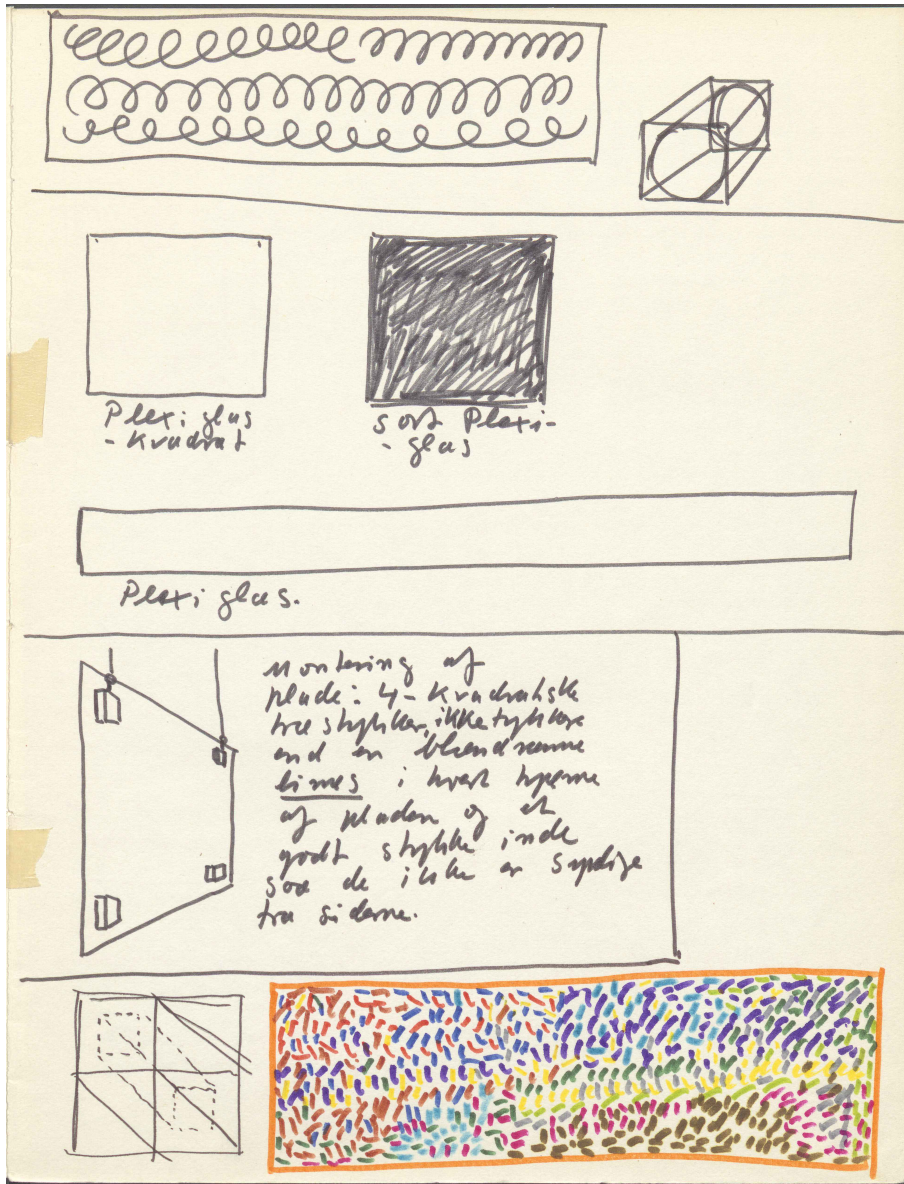 Plexiglas
- Kvadrat
sort Plexi-
- glas
Plexiglas.
Montering af
plade: 4 - kvadratiske
træstykker, ikke tykkere
end en blændramme
limes i hvert hjørne
af pladen og et
godt stykke inde
så de ikke er synlige
fra siderne.